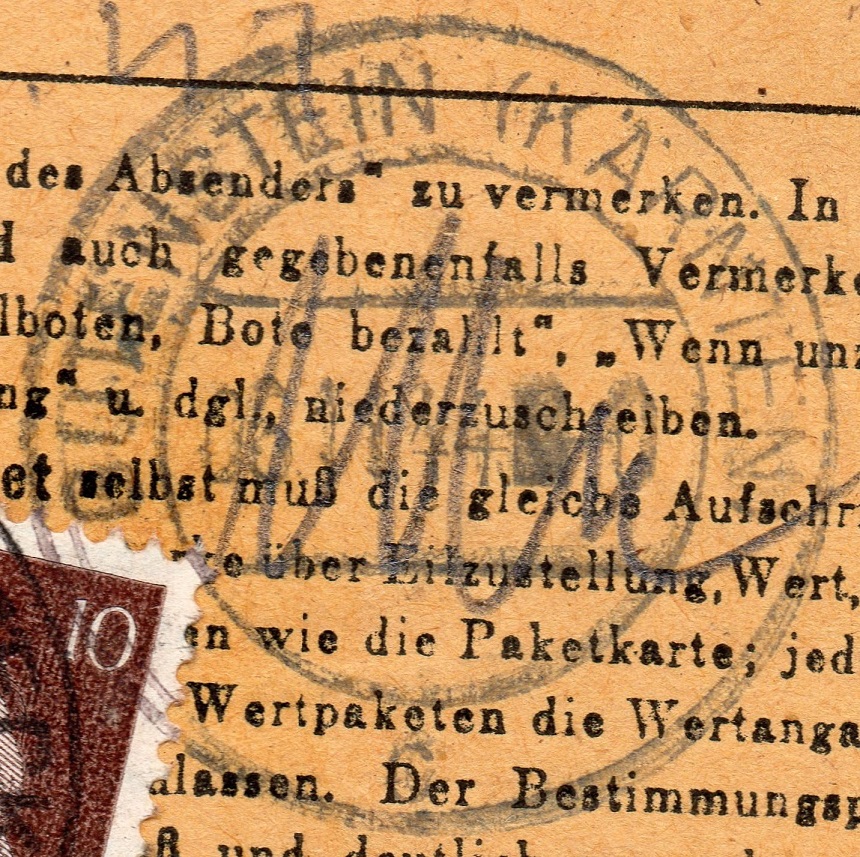 GUTENSTEIN (KÄRNTEN)
des Absenders" zu vermerken. In
d auch gegebenenfalls Vermerke
lboten, Bote bezahlt", „Wenn unz
ng" u. dgl., niederzuschreiben.
et selbst muß die gleiche Aufschr
rke über Eilzustellung, Wert,
en wie die Paketkarte; jed
10
Wertpaketen die Wertanga
c
ulassen. Der Bestimmungsp
ß und deutlich